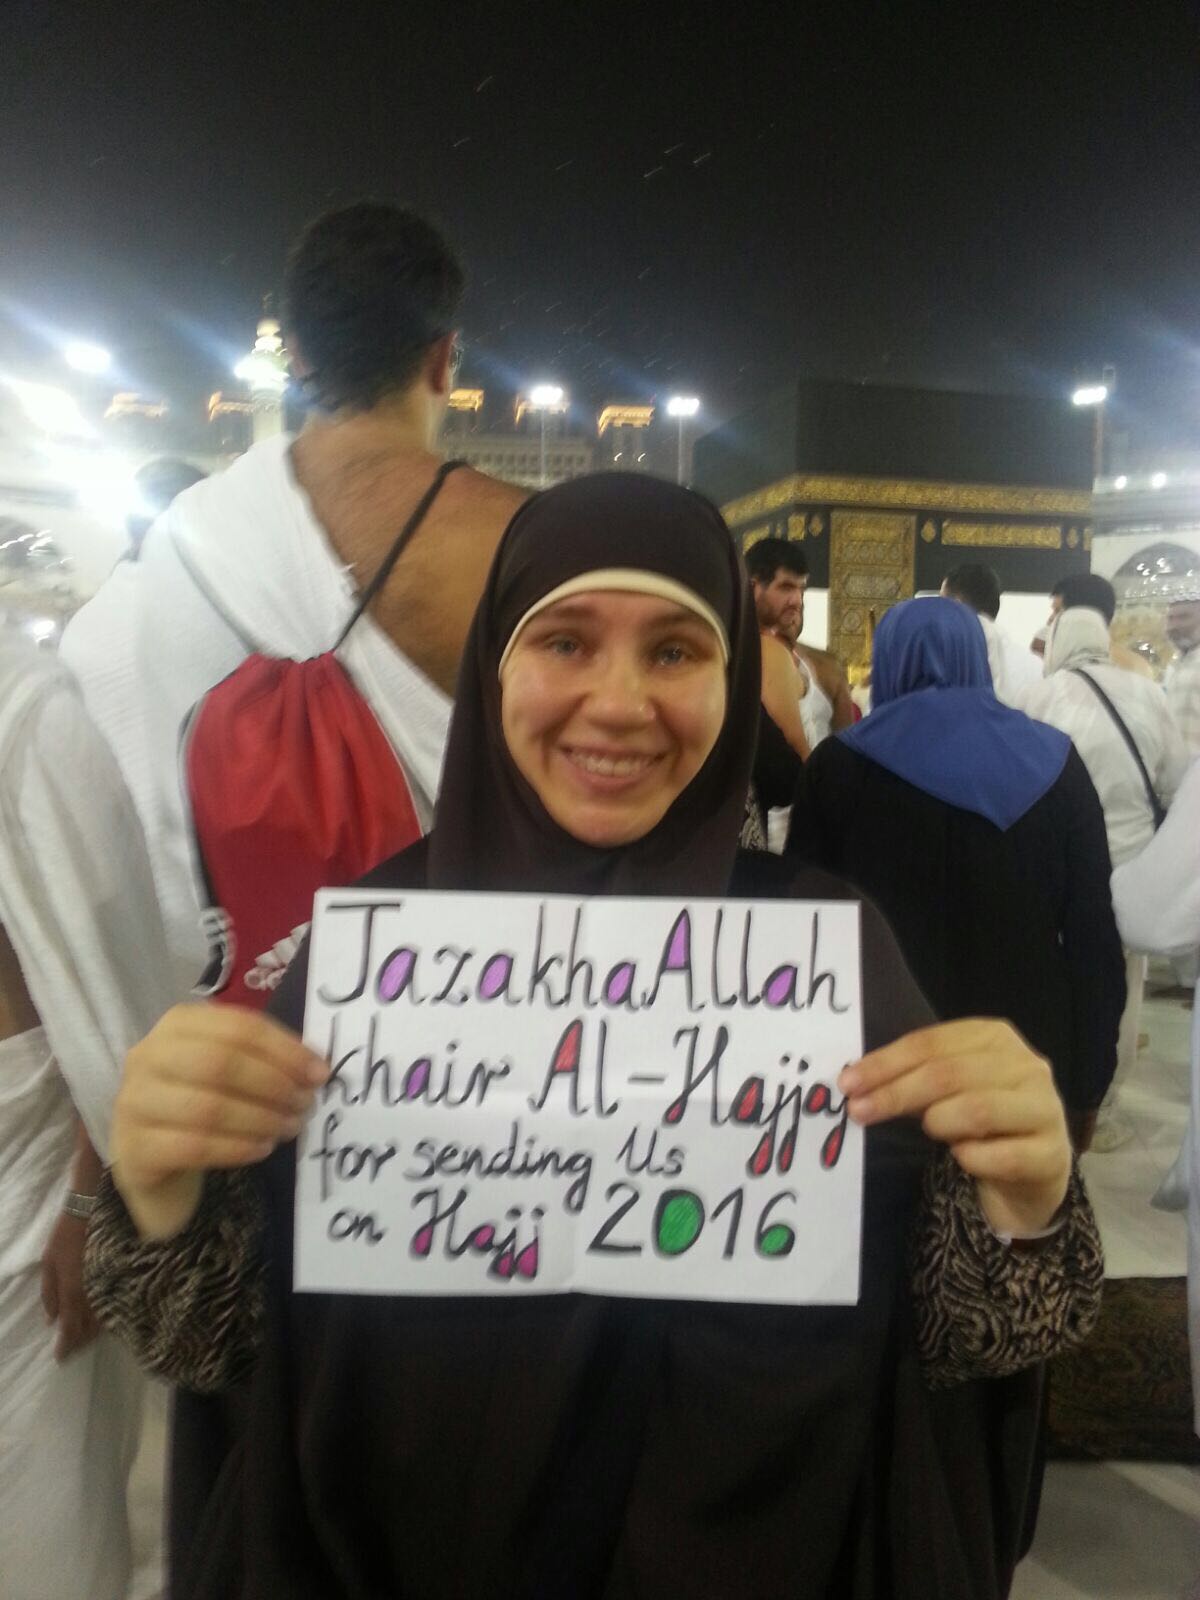 JazakhaAllah
khair Al-Hajjaj
for sending Us
on Hajj 2016